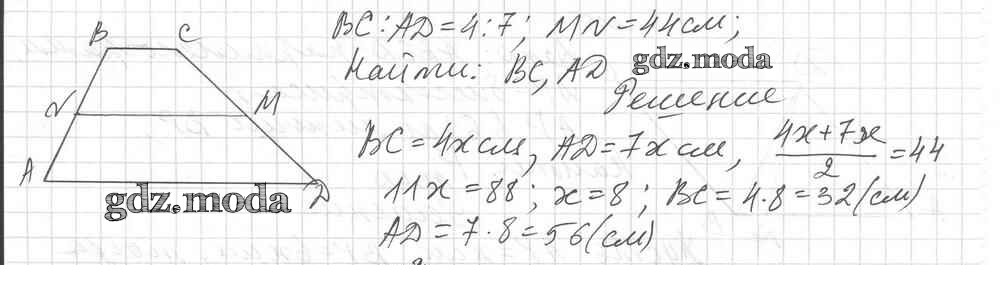 BC:AD=4:7; MN=44см;
Найти: BC, AD
gdz.moda
Решение
BC=4x см, AD=7x см, (4x+7x)/2=44
11x=88; x=8; BC=4·8=32(см)
AD=7·8=56(см)
B C
N M
A D
gdz.moda